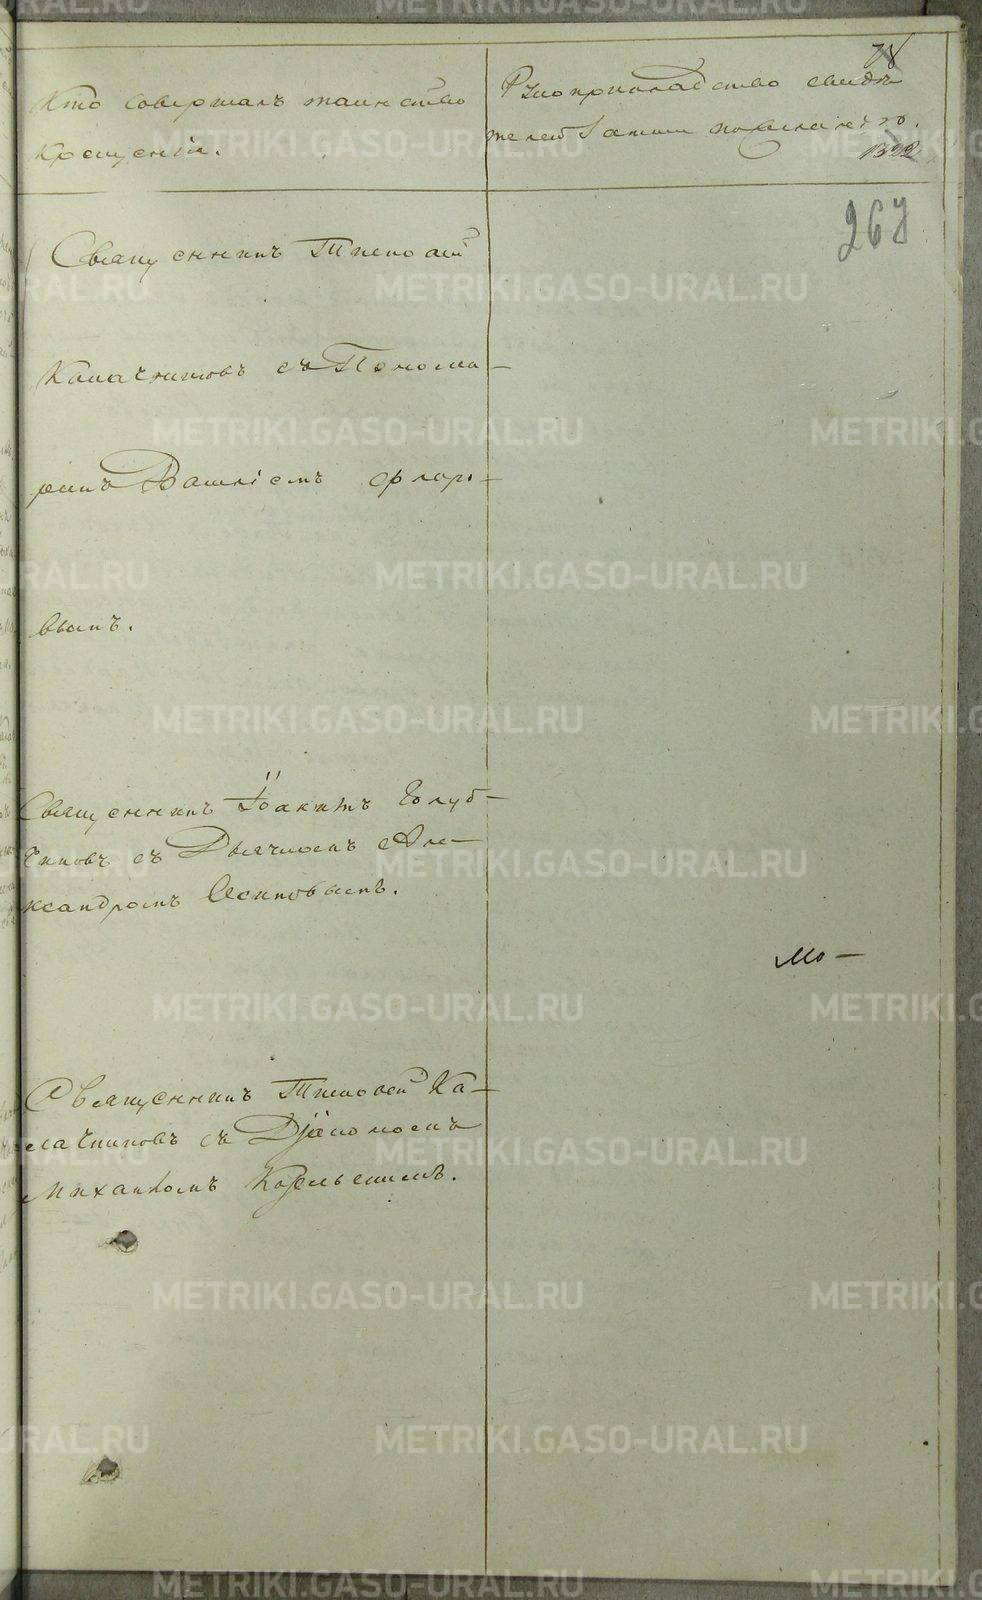 78
Кто совершалъ таинство
крещенія.
Рукоприкладство свидѣ
телей записи по желанію.
1322
267
Священникъ Тимофей
Калачниковъ съ Понома-
ремъ
вымъ.
Священникъ Іоакимъ Голуб-
чиковъ съ Дьячкомъ Але-
ксандромъ Осиповымъ.
Мо-
Священникъ Тимофей Ка-
лачниковъ съ Діакономъ
Михаиломъ